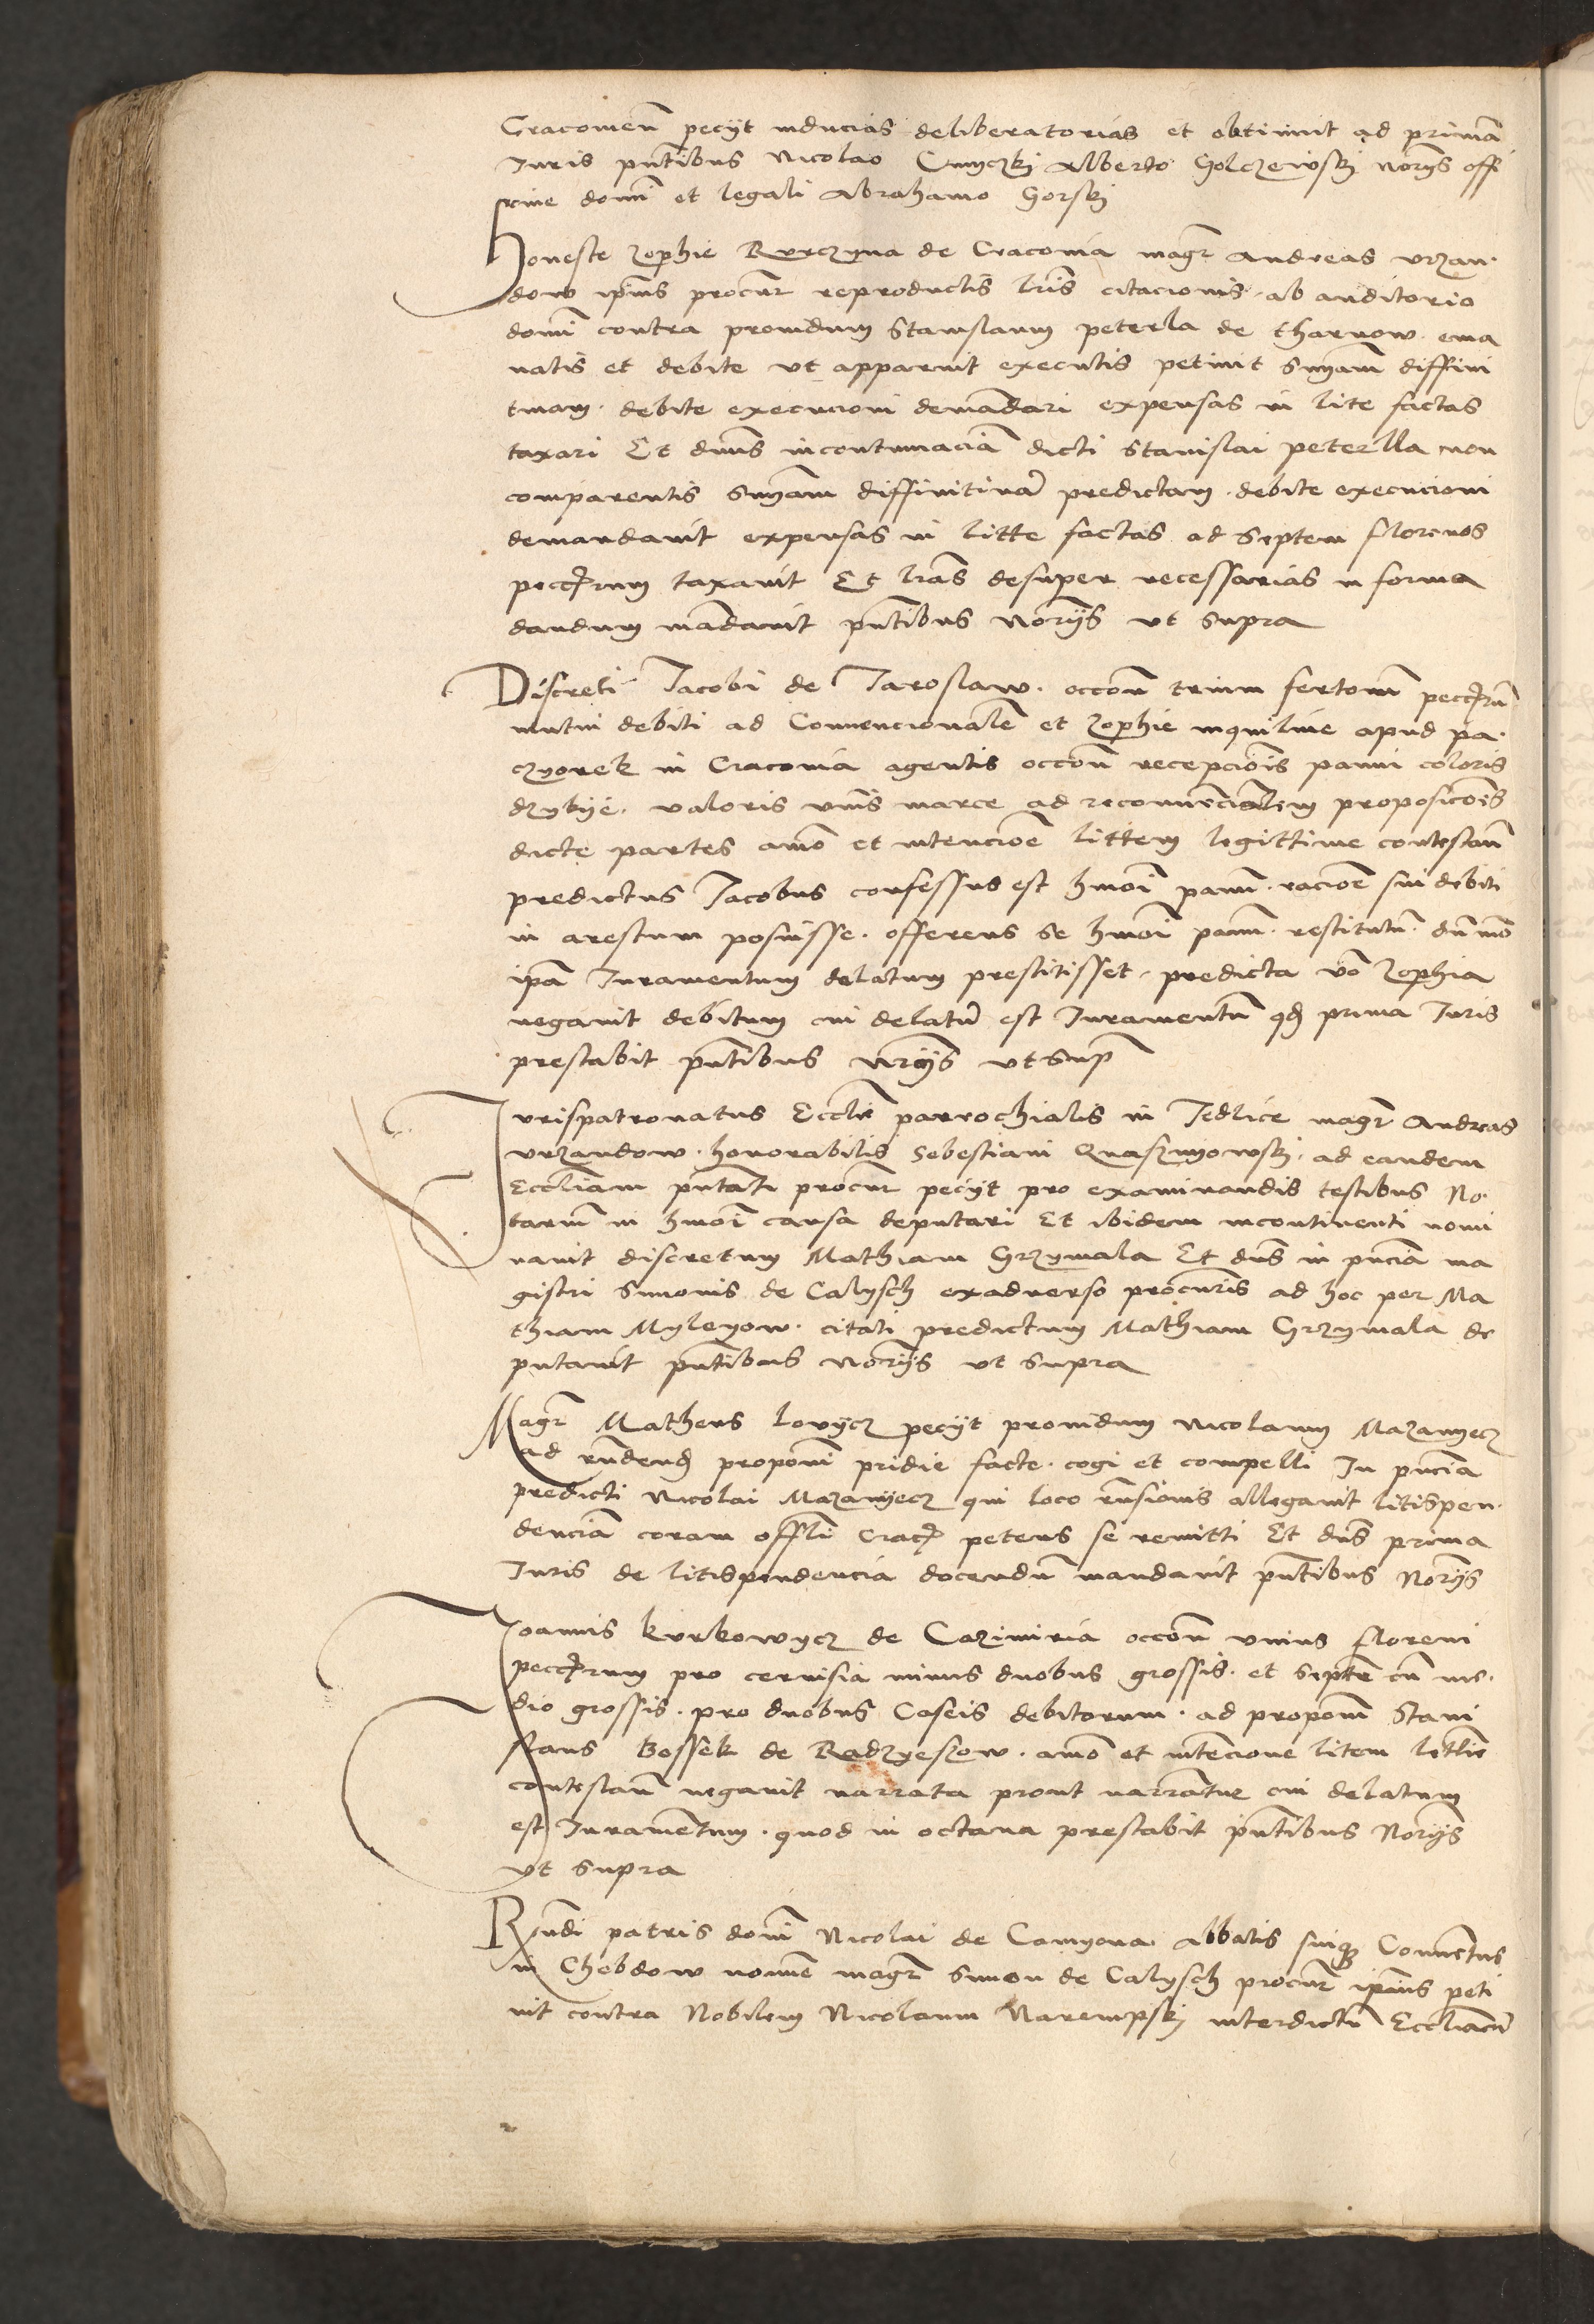 Cracovien̄ pecijt inducias deliberatorias et obtinuit ad primā
Juris pn̄tibus Nicolao Cmyczky Alberto Golczewsky norijs offi
cine domī et legali Abrahamo Gorsky
Honeste Zophie Kurczyna de Cracovia magr̄ Andreas Vrzan
dow ip̄ius procur̄ reproductis lr̄is citacionis ab auditorio
domī contra providum Stanislaum peterla de Tharnow ema
natis et debite vt apparuit executis petiuit sn̄iam diffini
tiuam debite execucioni demādari expensas in lite factas
taxari Et dn̄us in contumaciā dicti Stanislai peterlla non
comparentis sn̄iam diffinitiuā predictam debite execucioni
demandauit expensas in litte factas ad septem florenos
peccūrum taxauit Et lr̄as desuper necessarias in forma
dandum mādauit pn̄tibus Norijs vt supra
Discreti Jacobi de Jaroslaw occōn trium fertonū peccūrū
mutui debiti ad Convencionalē et Zophie inquiline apud pa
czyorek in Cracovia agentis occōn recepciōis panni coloris
dzykije valoris vnīs marce ad reconvencialem proposicōes
dicte partes aīo et intencioē littem legittime contestan̄
predictus Jacobus confessus est hmōi pannū racioē sui debiti
in arestum posuisse offerens se hmōi pannū restitutur̄ dūmō
ip̄a Juramentum delatum prestitisset predicta vō Zophia
negauit debitum cui delatū est Juramentū qd̄ prima Juris
prestabit pn̄tibus nrijs vt sup̄
Jurispatronatus Ecclīe parrochialis in Jedlice magr̄ Andreas
vrzandow honorabilis Sebestiani Quaschnyowsky ad eandem
Eccliam pn̄tati procur̄ pecijt pro examinandis testibus No
tariū in hmōi causa deputari Et ibidem incontinenti nomi
nauit discretum Mathiam Grzymala Et dn̄s in pn̄cia ma
gistri Simonis de Calysch exadverso procur̄is ad hoc per Ma
thiam Myleyow citati predictum Mathiam Grzymala de
putauit pn̄tibus Norijs vt supra
Magr̄ Matheus Lovycz pecijt providum Nicolaum Mazanyecz
ad rn̄dend̄ proponī pridie facte cogi et compelli In pn̄cia
predicti Nicolai Mazanyecz qui loco rn̄sionis allegauit litispen
denciā coram offli Crac̄ petens se remitti Et dn̄s prima
Juris de litispendencia docendū mandauit pn̄tibus Norijs
Joannis Kurkowycz de Cazimiria occōn vnius floreni
peccūrum pro ceruisia minus duobus grossis et septē cū me
dio grossis pro duobus Caseis debitorum ad proponī Stani
slaus Bessek de Radzyeszow aīo et intencione litem letlīe
contestan̄ negauit narrata prout narrātur cui delatum
est Juramētum quod in octaua prestabit pn̄tibus Norijs
vt supra
Rn̄di patris domī Nicolai de Camyona Abbatis suiq̄ Convētus
in Chebdow noīne magr̄ Simon de Calysch procur̄ ip̄ius peti
uit contra Nobilem Nicolaum Narempsky interdictū Eccliacū